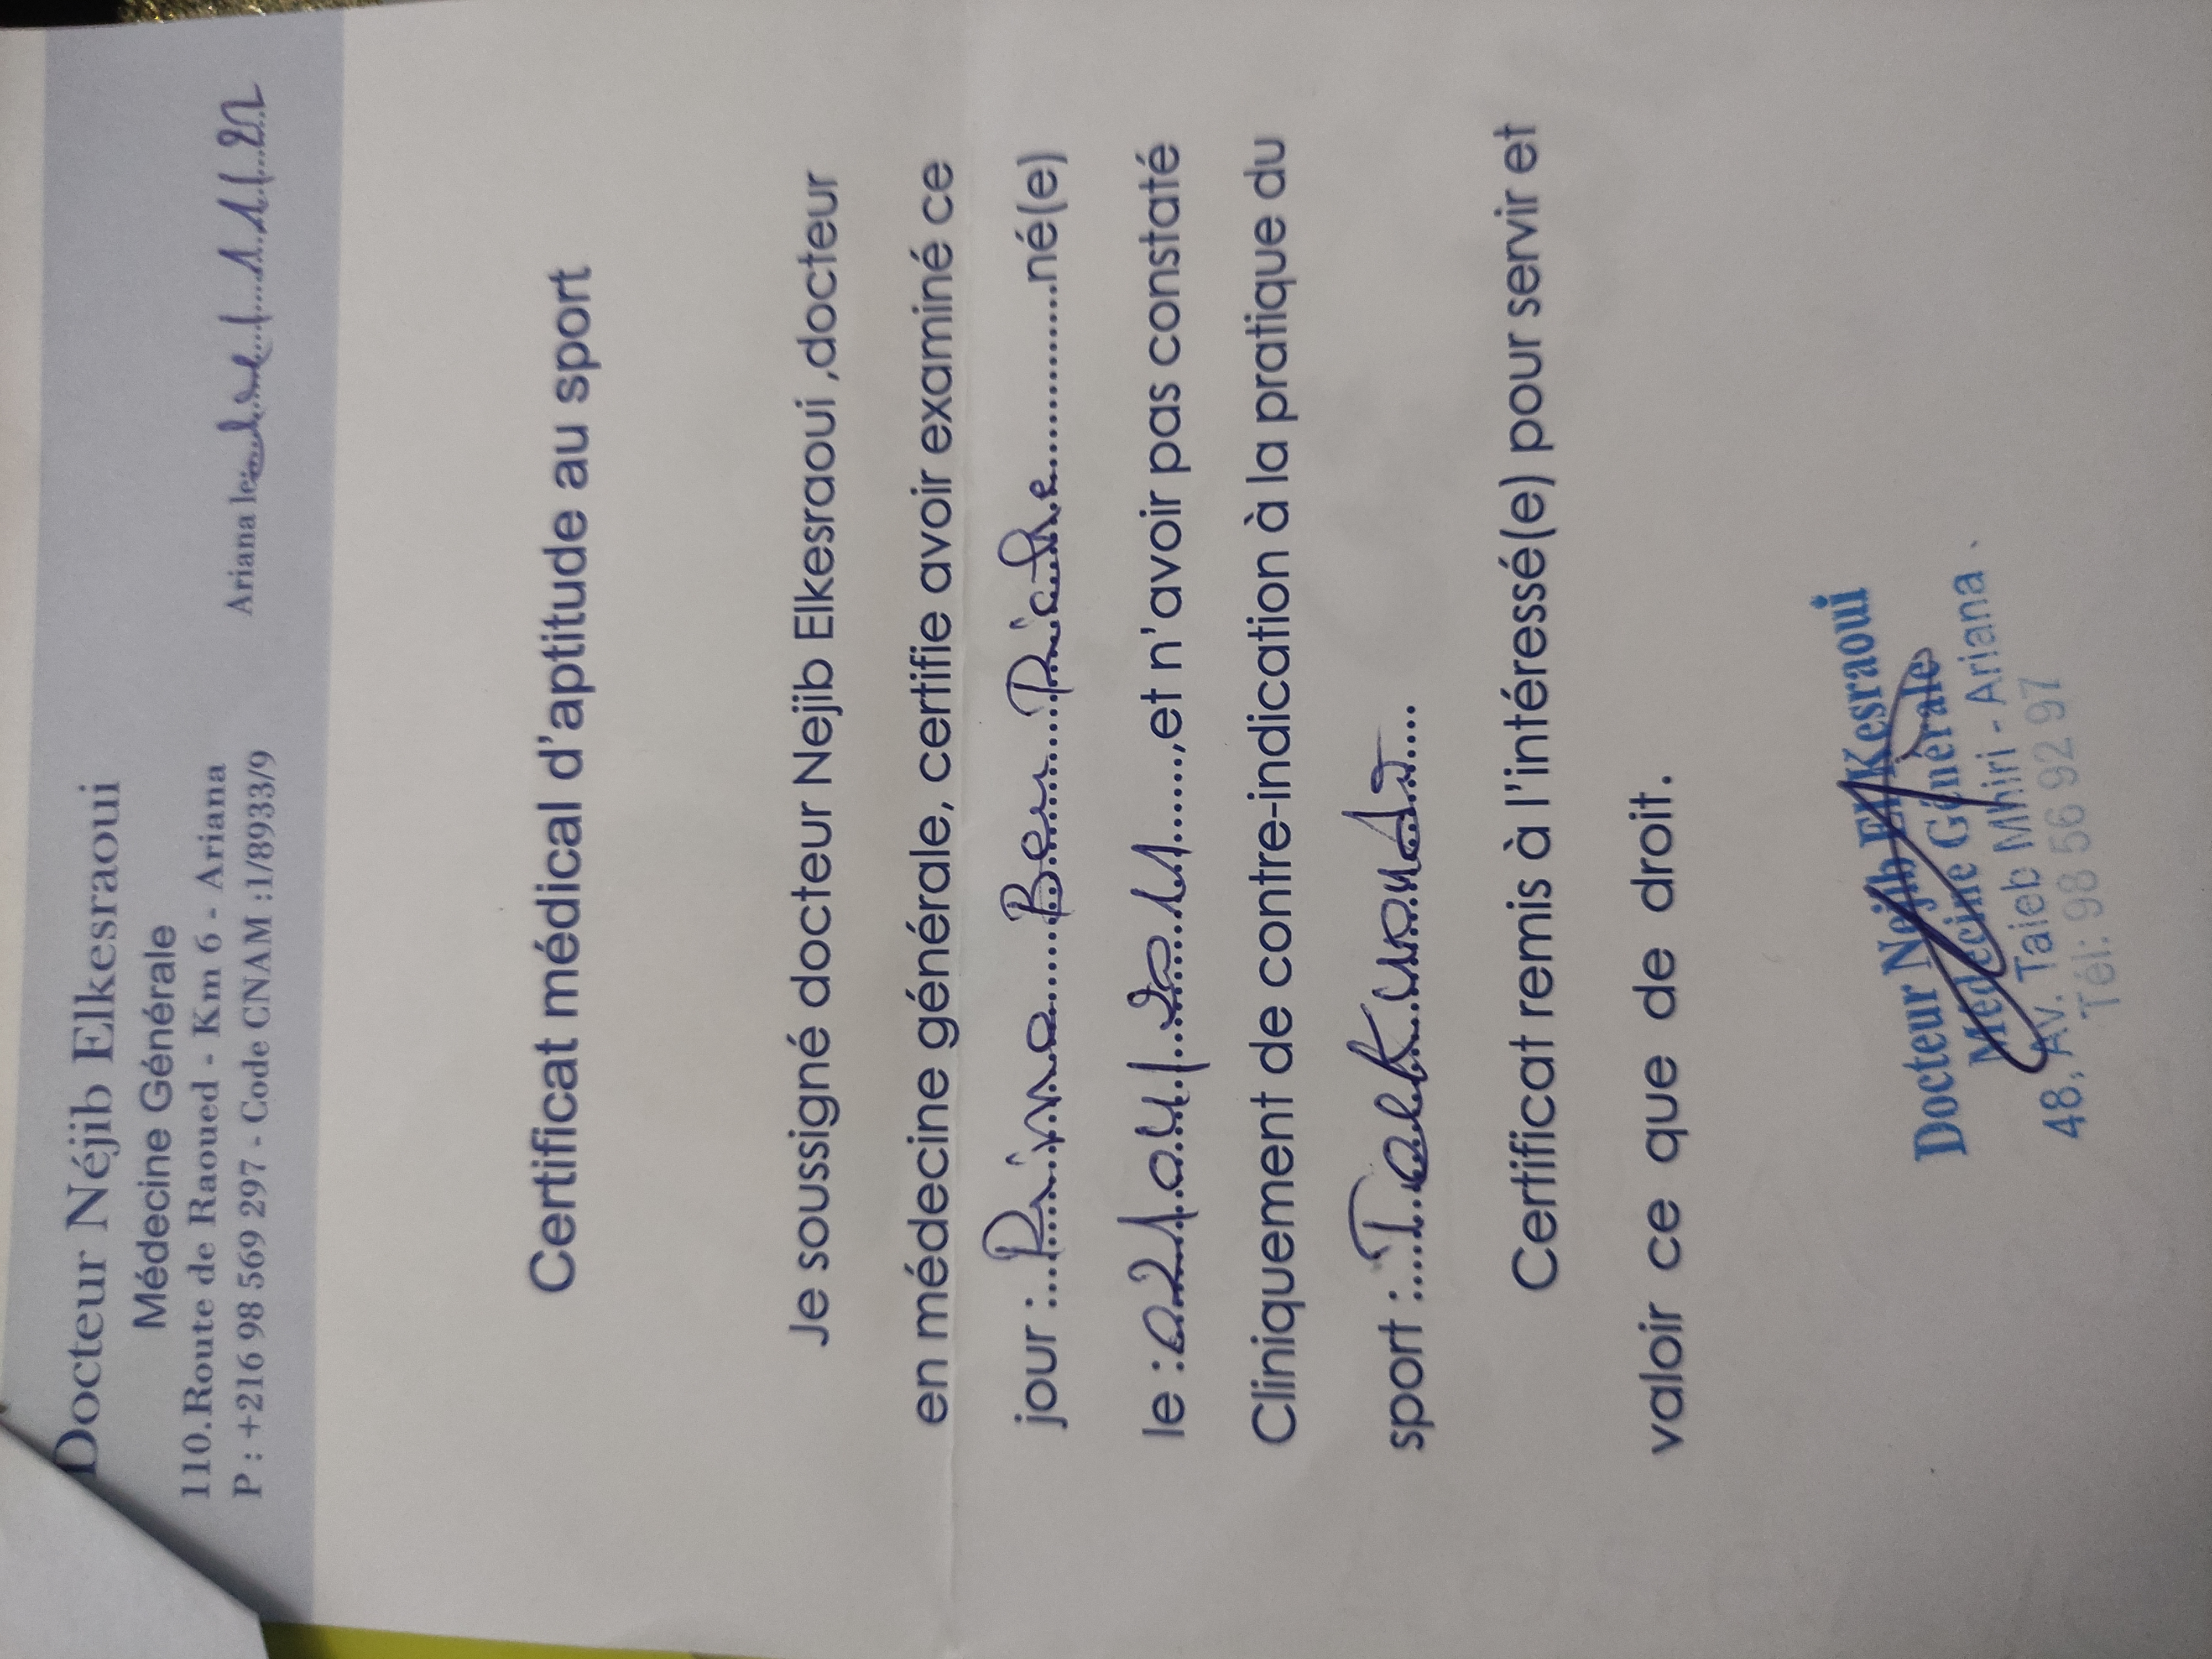 Docteur Néjib Elkesraoui
Médecine Générale
110.Route de Raoued - Km 6 - Ariana
P : +216 98 569 297 - Code CNAM :1/8933/9
Ariana le:
Certificat médical d'aptitude au sport
Je soussigné docteur Nejib Elkesraoui ,docteur
en médecine générale, certifie avoir examiné ce
jour :....Rima.....Ben.....Riadh.............né(e)
le :02/04/2011......,et n'avoir pas constaté
Cliniquement de contre-indication à la pratique du
sport :....Taekwondo....
Certificat remis à l'intéressé(e) pour servir et
valoir ce que de droit.
Docteur Nejib El Kesraoui
Médecine Générale
48, Av. Taieb Mhiri - Ariana
Tél: 98 56 92 97